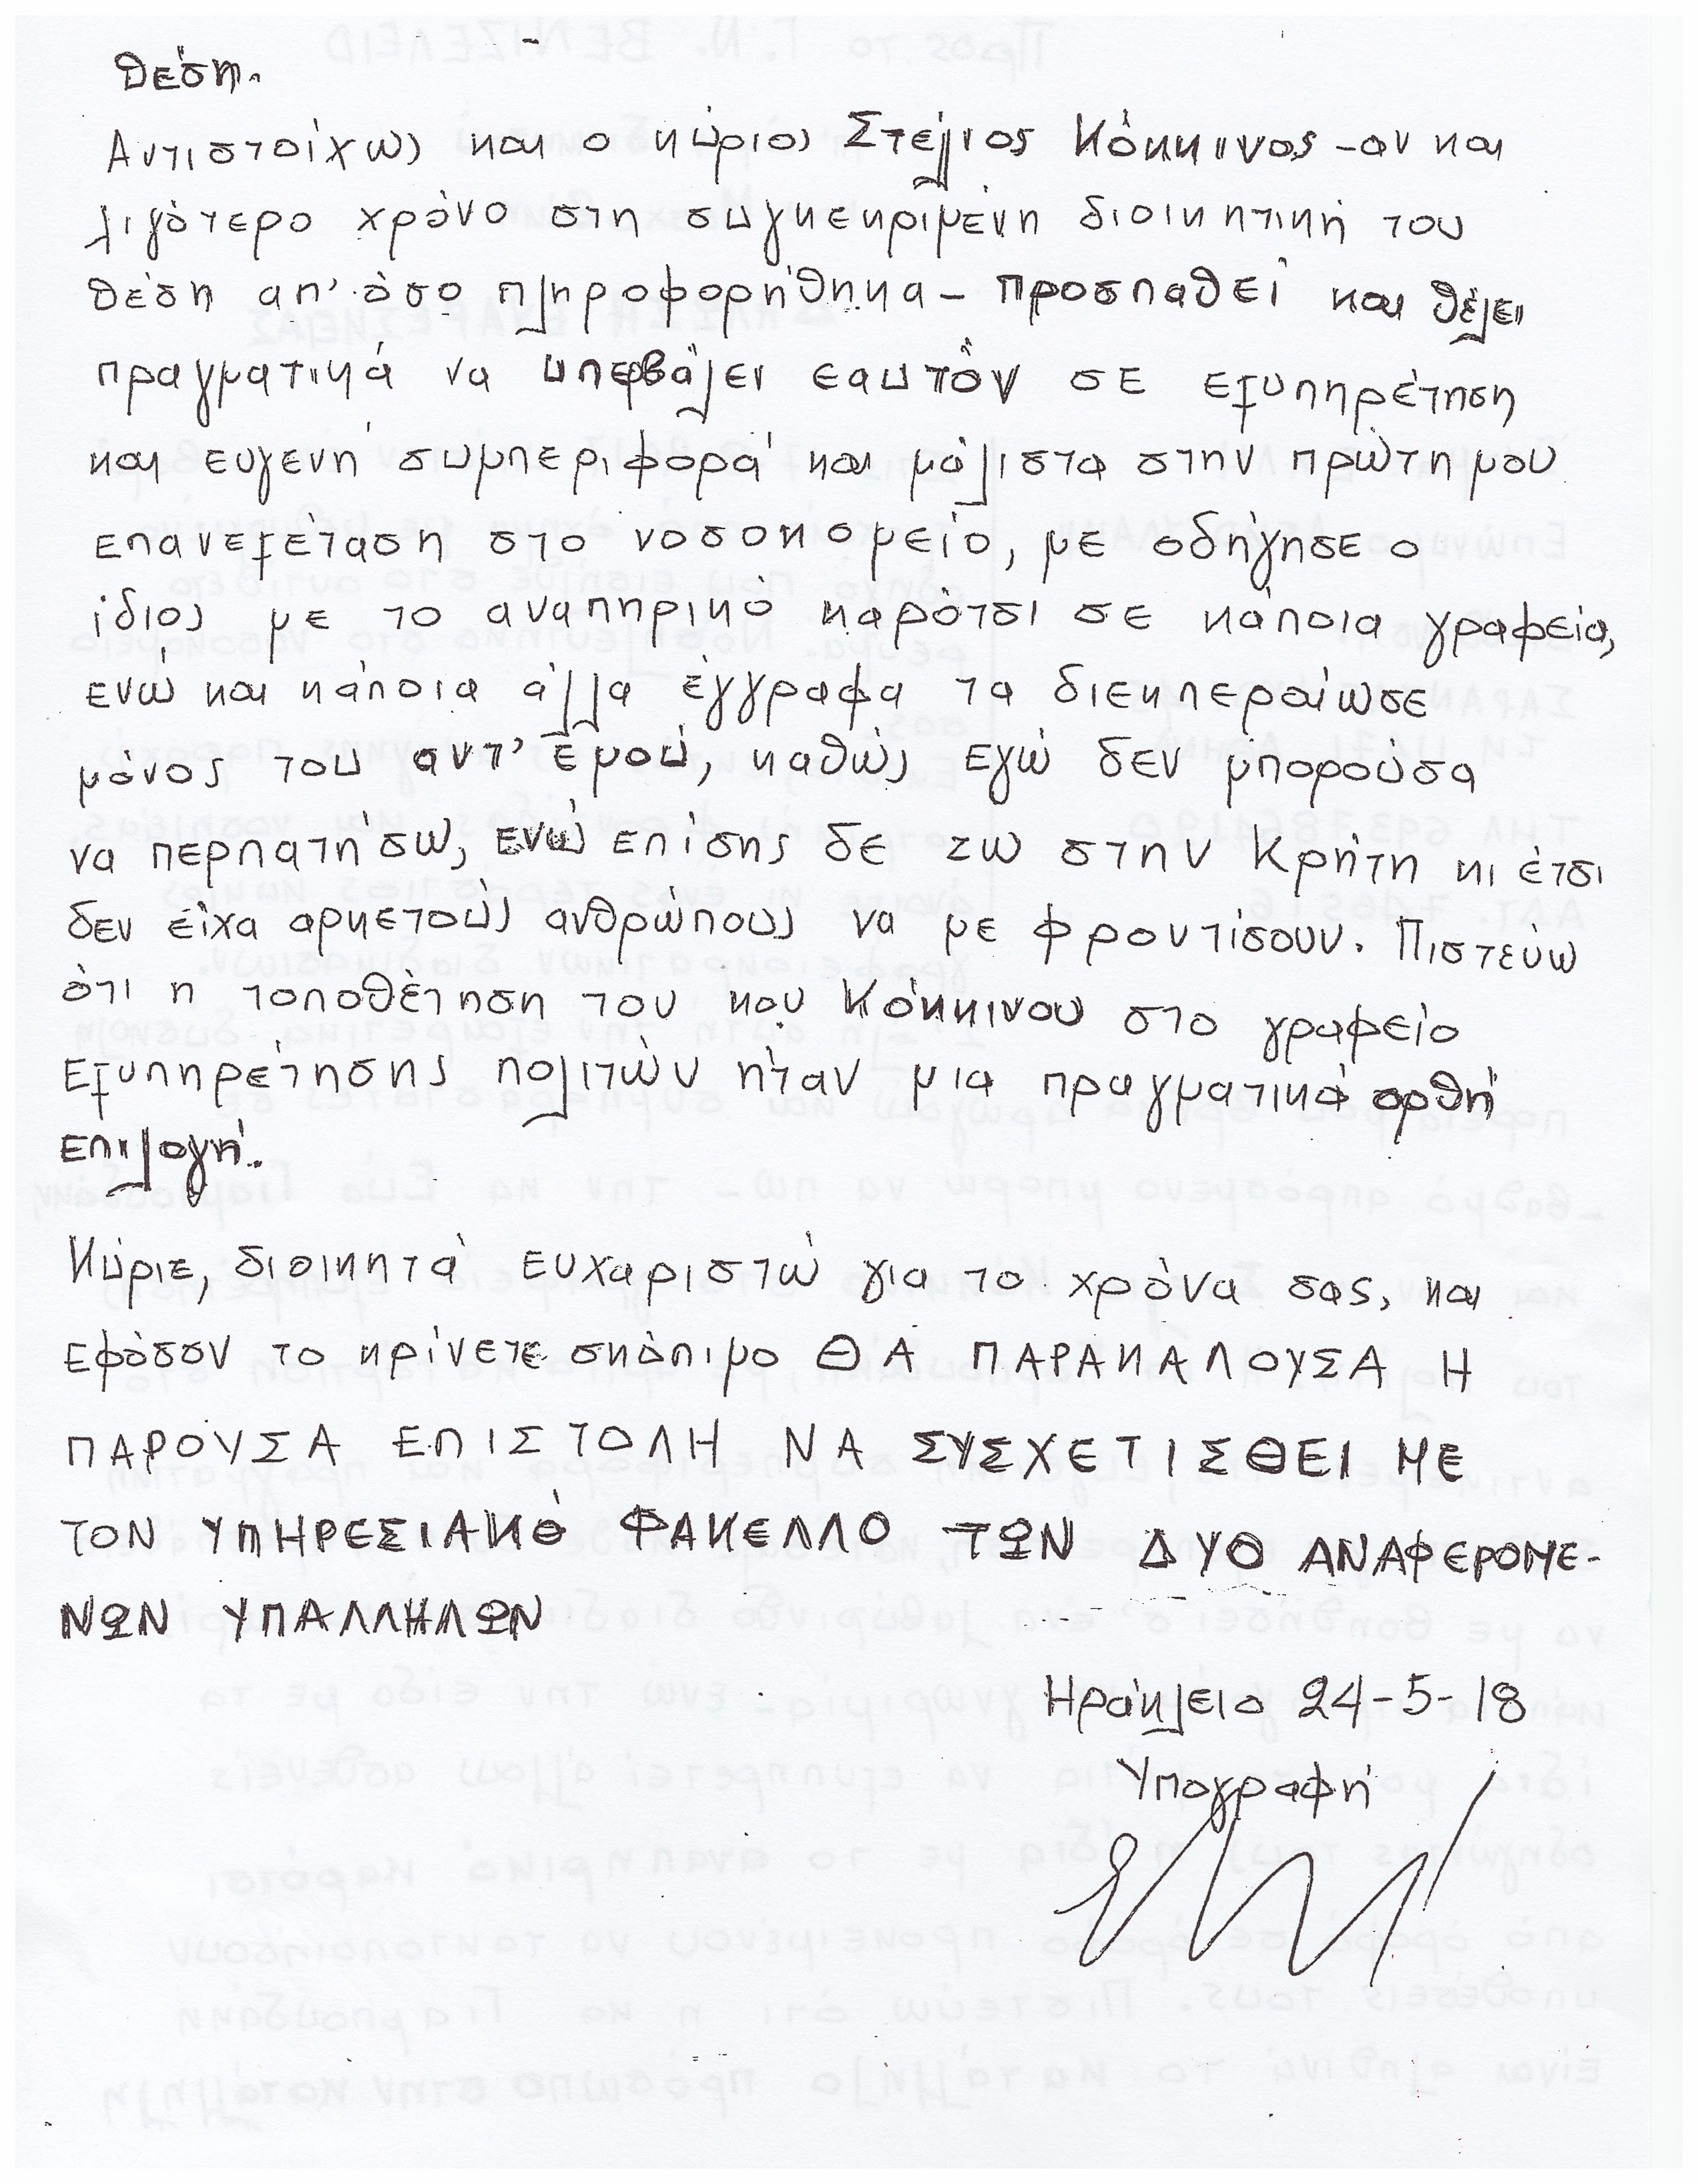 θέση.
Αντιστοίχως και ο κύριος Στέλιος Κόκκινος -αν και
λιγότερο χρόνο στη συγκεκριμένη διοικητική του
θέση απ' όσο πληροφορήθηκα- προσπαθεί και θέλει
πραγματικά να υπερβάλει εαυτόν σε εξυπηρέτηση
και ευγενή συμπεριφορά και μάλιστα στην πρώτη μου
επανεξέταση στο νοσοκομείο, με οδήγησε ο
ίδιος με το αναπηρικό καρότσι σε κάποια γραφεία,
ενώ και κάποια άλλα έγγραφα τα διεκπεραίωσε
μόνος του αντ' εμού, καθώς εγώ δεν μπορούσα
να περπατήσω, ενώ επίσης δε ζω στην Κρήτη κι έτσι
δεν είχα αρκετούς ανθρώπους να με φροντίσουν. Πιστεύω
ότι η τοποθέτηση του κου Κόκκινου στο γραφείο
Εξυπηρέτησης πολιτών ήταν μια πραγματικά ορθή
επιλογή.
Κύριε, διοικητά ευχαριστώ για το χρόνο σας, και
εφόσον το κρίνετε σκόπιμο ΘΑ ΠΑΡΑΚΑΛΟΥΣΑ Η
ΠΑΡΟΥΣΑ ΕΠΙΣΤΟΛΗ ΝΑ ΣΥΣΧΕΤΙΣΘΕΙ ΜΕ
ΤΟΝ ΥΠΗΡΕΣΙΑΚΌ ΦΑΚΕΛΛΟ ΤΩΝ ΔΥΟ ΑΝΑΦΕΡΟΜΕ-
ΝΩΝ ΥΠΑΛΛΗΛΩΝ
Ηράκλειο 24-5-18
Υπογραφή